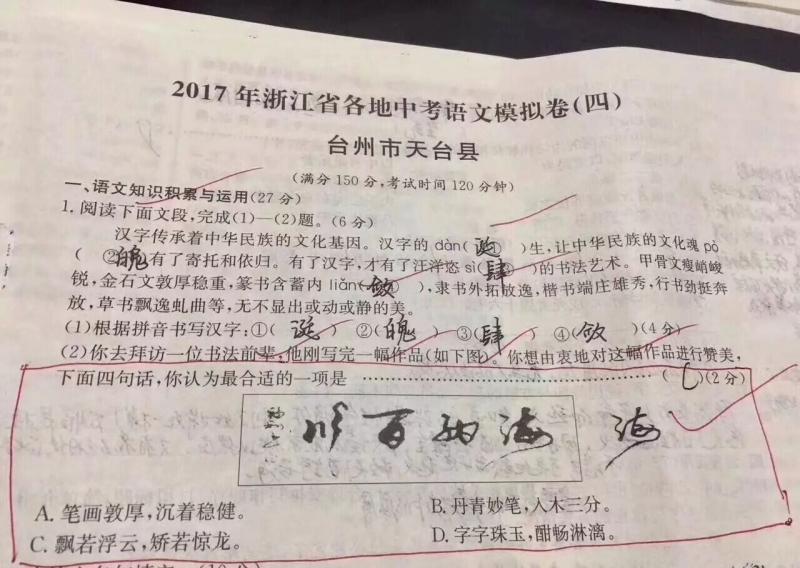 2017年浙江省各地中考语文模拟卷(四)
台州市天台县
(满分150分,考试时间120分钟)
一、语文知识积累与运用(27分)
1. 阅读下面文段,完成(1)—(2)题。(6分)
汉字传承着中华民族的文化基因。汉字的dàn(①)生,让中华民族的文化魂pò
(②魄)有了寄托和依归。有了汉字,才有了汪洋恣sì(肆)的书法艺术。甲骨文瘦峭峻
锐,金石文敦厚稳重,篆书含蓄内liǎn(敛),隶书外拓放逸,楷书端庄雄秀,行书劲挺奔
放,草书飘逸虬曲等,无不显出或动或静的美。
(1)根据拼音书写汉字:①(诞)②(魄)③(肆)④(敛)(4分)
(2)你去拜访一位书法前辈,他刚写完一幅作品(如下图)。你想由衷地对这幅作品进行赞美,
下面四句话,你认为最合适的一项是……(C)(2分)
川百纳海 海
A. 笔画敦厚,沉着稳健。
B. 丹青妙笔,入木三分。
C. 飘若浮云,矫若惊龙。
D. 字字珠玉,酣畅淋漓。